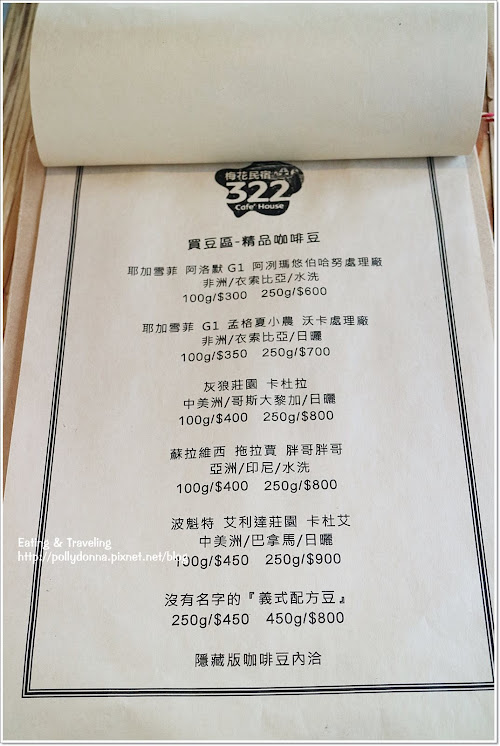 梅花民宿
322
Cafe' House
買豆區-精品咖啡豆
耶加雪菲 阿洛默 G1 阿冽瑪悠伯哈努處理廠
非洲/衣索比亞/水洗
100g/$300 250g/$600
耶加雪菲 G1 孟格夏小農 沃卡處理廠
非洲/衣索比亞/日曬
100g/$350 250g/$700
灰狼莊園 卡杜拉
中美洲/哥斯大黎加/日曬
100g/$400 250g/$800
蘇拉維西 拖拉賈 胖哥胖哥
亞洲/印尼/水洗
100g/$400 250g/$800
波魁特 艾利達莊園 卡杜艾
中美洲/巴拿馬/日曬
100g/$450 250g/$900
沒有名字的『義式配方豆』
250g/$450 450g/$800
隱藏版咖啡豆內洽
Eating & Traveling
http://pollydonna.pixnet.net/blog